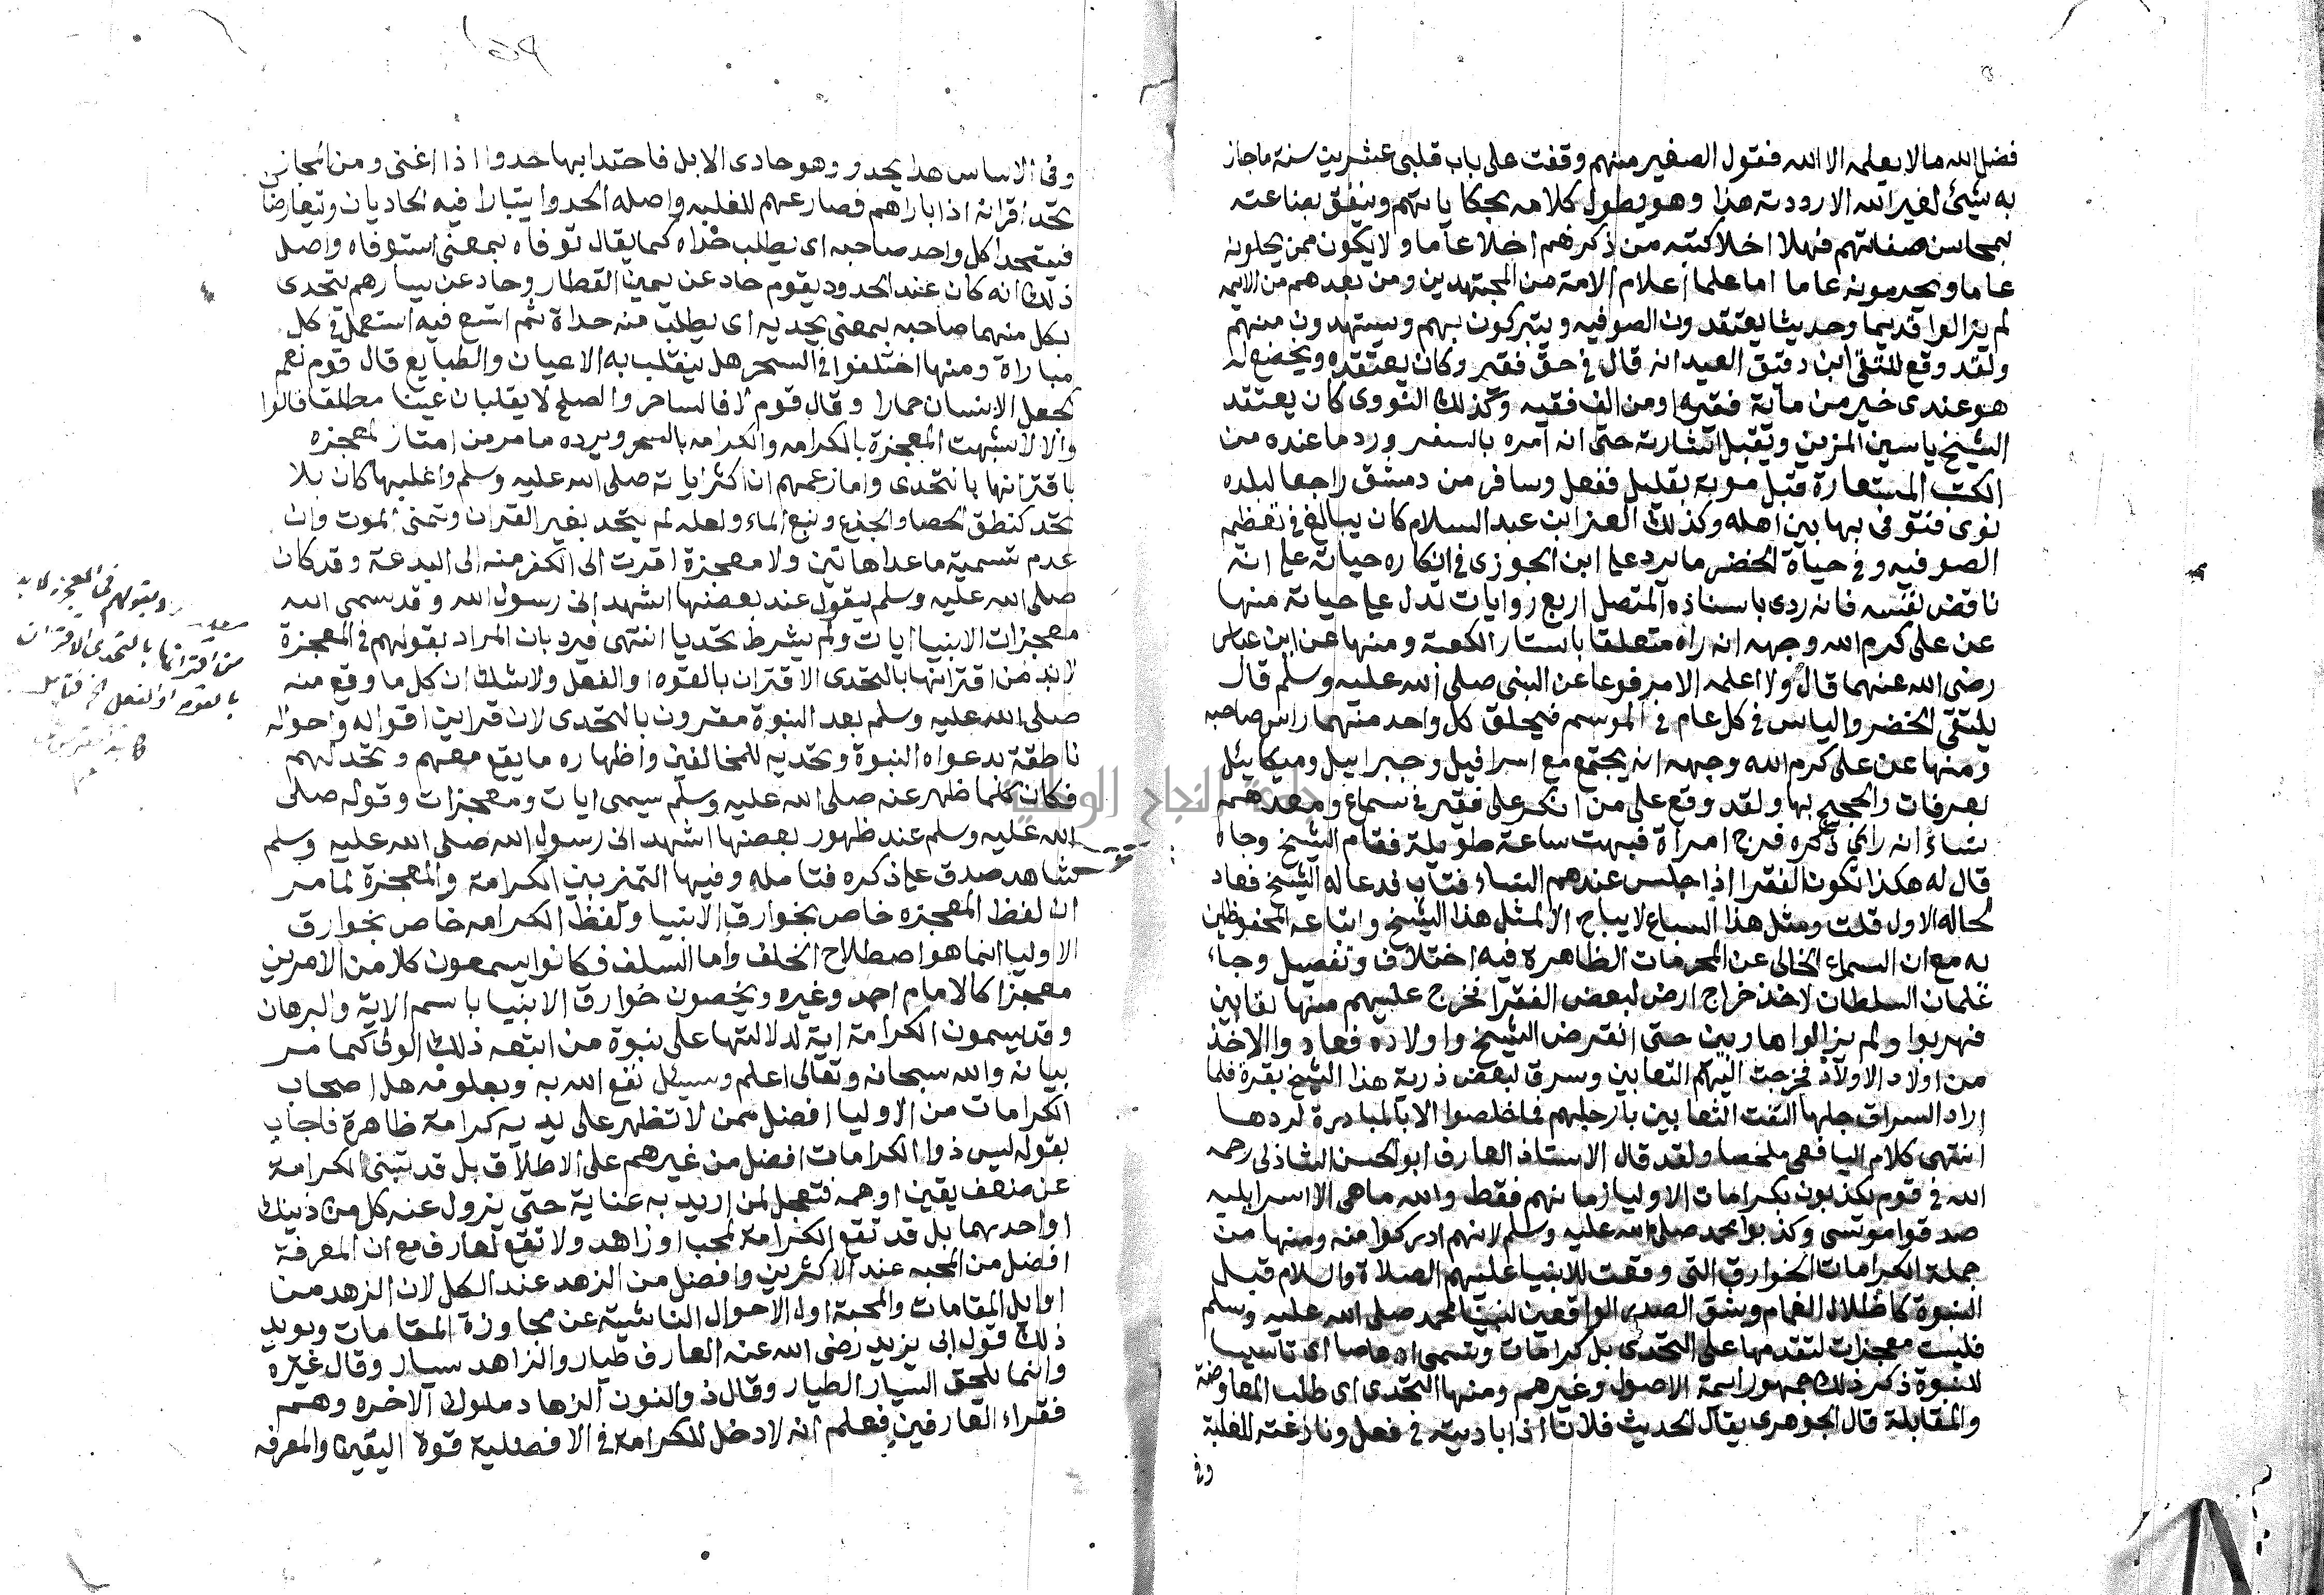 فضل الله مالا يعلمه الا الله فقول الصغير منهم وقفت على باب قلبي عشرين سنة ما جاز
به شيئ لغير الله الا رددته هذا وهو يطول كلامه بحكاياتهم وينفق بضاعته
بمحاسن صفاتهم فهلا اخلا كتبه من ذكرهم اخلا عاما ولا يكون ممن يحلونه
عاما ويحرمونه عاما اما علما اعلام الامة من المجتهدين ومن بعدهم من الايمه
لم يزالوا قديما وحديثا يعتقدون الصوفيه ويتبركون بهم ويستمدون منهم
ولقد وقع للتقي ابن دقيق العيد انه قال في حق فقير وكان يعتقده ويخضع له
هو عندي خير من ماية فقيه او من الف فقيه وكذلك النووي كان يعتقد
الشيخ ياسين المزين ويقبل اشارته حتى انه امره بالسفر ورد ما عنده من
الكتب المستعارة قبل موته بقليل ففعل وسافر من دمشق راجعا لبلده
نوى فتوفى بها بين اهله وكذلك العز ابن عبد السلام كان يبالغ في تعظيم
الصوفيه وفي حياة الخضر ما يرد على ابن الجوزي في انكاره حياته على انه
ناقض نفسه فانه روى باسناده المتصل اربع روايات تدل على حياته منها
عن علي كرم الله وجهه انه راه متعلقا باستار الكعبة ومنها عن ابن عباس
رضي الله عنهما قال ولا اعلمه الا مرفوعا عن النبي صلى الله عليه وسلم قال
يلتقي الخضر والياس في كل عام في الموسم فيحلق كل واحد منهما راس صاحبه
ومنها عن علي كرم الله وجهه انه يجتمع مع اسرافيل وجبراييل وميكاييل
بعرفات والحجيج بها ولقد وقع على من انكر على فقير في سماع ومعدهم
نساء انه راى ذكره فرج امراة فبهت ساعة طويلة فقام الشيخ وجاه
قال له هكذا تكون الفقرا اذا جلس عندهم النساء فتاب فدعا له الشيخ فعاد
لحاله الاول قلت ومثل هذا السماع لا يباح الا لمثل هذا الشيخ واتباعه المحفوظين
به مع ان السماع الخالي عن المحرمات الظاهرة فيه اختلاف وتفصيل وجاء
غلمان السلطان لاخذ خراج ارض لبعض الفقرا فخرج عليهم منها ثعابين
فهربوا ولم يزالوا هاربين حتى انقرض الشيخ واولاده فعادوا الاخذ
من اولاد الاولاد فخرجت اليهم الثعابين وسرق لبعض ذرية هذا الشيخ بقرة فلما
اراد السراق حلبها التفت الثعابين بارجلهم فما خلصوا الا بالمبادرة لردها
انتهى كلام اليافعي ملخصا ولقد قال الاستاذ العارف ابو الحسن الشاذلي رحمه
الله في قوم يكذبون بكرامات الاوليا زمانهم فقط والله ماهي الا اسرايليه
صدقوا موسى وكذبوا بمحمد صلى الله عليه وسلم لانهم ادركوا منه ومنها من
جملة الكرامات الخوارق التي وقعت للانبيا عليهم الصلاة والسلام قبل
النبوة كاظلال الغمام وشق الصدر الواقعين لنبينا محمد صلى الله عليه وسلم
فليست معجزات لتقدمها على التحدي بل كرامات وتسمى ارهاصا اي تاسيسا
للنبوة ذكر ذلك جمهور ايمة الاصول وغيرهم ومنها التحدي اي طلب المعاوضة
والمقابلة قال الجوهري يقال تحديت فلانا اذا باريته في فعل ونازعته للغلبة
وفي
وفي الاساس حدا يحدو وهو حادي الابل فاحتدا بها حدوا اذا اغنى ومن المجاز
تحدا اقرانه اذا باراهم فصارعهم للغلبه واصله الحدوا يتبارا فيه الحاديان ويتعارضا
فيتحدا كل واحد صاحبه اي يطلب حداه كما يقال توفاه بمعنى استوفاه واصل
ذلك انه كان عند الحدو ديقوم حاد عن يمين القطار وحاد عن يسارهم يتحدى
كل منهما صاحبه بمعنى يحديه اي يطلب منه حداه ثم اتسع فيه استعمل في كل
مباراة ومنها اختلفوا في السحر هل ينقلب به الاعيان والطبايع قال قوم نعم
كجعل الانسان حمارا وقال قوم لا فالساحر والصلح لا يقلبان عينا مطلقا قالوا
والا لاشبهت المعجزة بالكرامه والكرامه بالسحر ويرده ما مر من امتاز المعجزه
باقترانها بالتحدي واما زعمهم ان اكثر اياته صلى الله عليه وسلم واغلبها كان بلا
تحد كنطق الحصا والجذع ونبع الماء ولعله لم يتحد بغير القران وتمنى الموت وان
عدم تسمية ما عدا هاتين ولا معجزة اقرب الى الكفر منه الى البدعة وقد كان
صلى الله عليه وسلم يقول عند بعضها اشهد اني رسول الله وقد سمى الله
معجزات الانبيا ايات ولم يشرط تحديا انتهى فيرد بان المراد بقولهم في المعجزة
لابد من اقترانها بالتحدي الاقتران بالقوه او الفعل ولا شك ان كل ما وقع منه
صلى الله عليه وسلم بعد النبوة مقرون بالتحدي لان قراين اقواله واحواله
ناطقة بدعواه النبوة وتحديه للمخالفين واظهاره ما يقع معهم وتحد لهم
فكان كلما ظهر عنه صلى الله عليه وسلم سمي ايات ومعجزات وقوله صلى
الله عليه وسلم عند ظهور بعضها اشهد اني رسول الله صلى الله عليه وسلم
شاهد صدق على ذكره فتامله وفيها التمز بين الكرامة والمعجزة لما مر
ان لفظ المعجزه خاص بخوارق الانبيا ولفظ الكرامه خاص بخوارق
الاوليا انما هو اصطلاح الخلف واما السلف فكانوا يسمون كلا من الامرين
معجزا كالامام احمد وغيره ويخصون خوارق الانبيا باسم الاية والبرهان
وقد يسمون الكرامة اية لدلالتها على نبوة من اتبعه ذلك الولي كما مر
بيانه والله سبحانه وتعالى اعلم وسيل نفع الله به وبعلومه هل اصحاب
الكرامات من الاوليا افضل ممن لا تظهر على يديه كرامة ظاهرة فاجاب
بقوله ليس ذوا الكرامات افضل من غيرهم على الاطلاق بل قد تنبئ الكرامة
عن ضعف يقين او همه فتعجل لمن اريد به عناية حتى يزول عنه كل من ذينك
او احدهما بل قد تقع الكرامة لمحب او زاهد ولا تقع لعارف مع ان المعرفة
افضل من المحبه عند الاكثرين وافضل من الزهد عند الكل لان الزهد من
اوايل المقامات والمحبة اول الاحوال الناشية عن مجاوزة المقامات ويويد
ذلك قول ابي يزيد رضي الله عنه العارف طيار والزاهد سيار وقال غيره
وانما يلحق السيار الطيار وقال ذو النون الزهاد ملوك الاخره وهم
فقراء العارفين فعلم انه لا دخل للكرامة في الافضلية قوة اليقين والمعرفه
وبقولهم في المعجزة لابد
من اقترانها بالتحدي الاقتران
بالقوه او الفعل فتامل
جامعة النجاح الوطنية